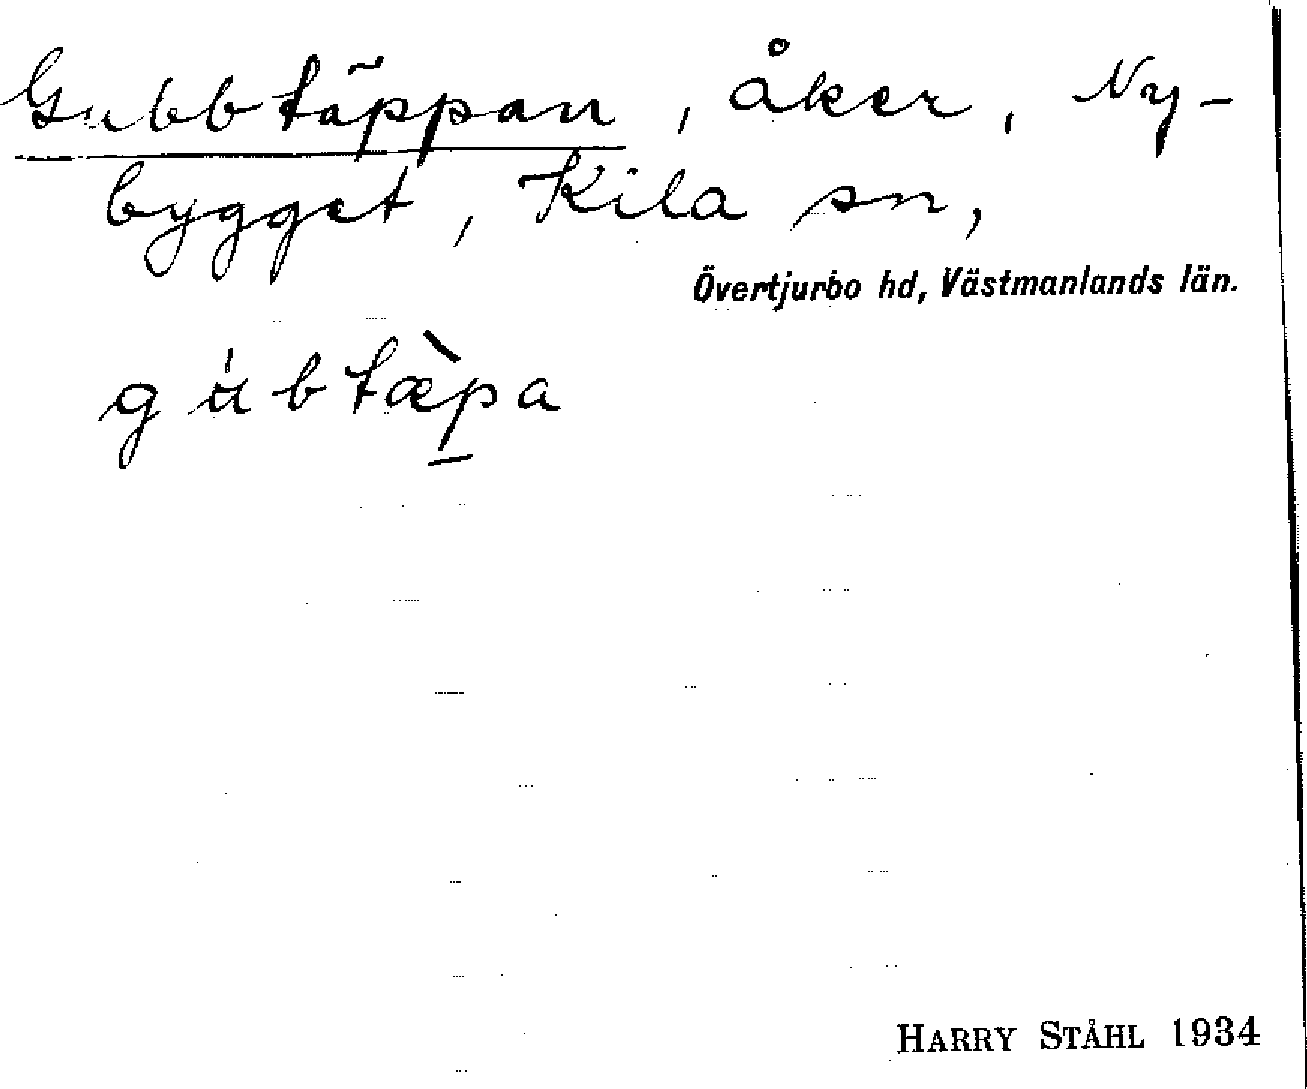 Gubbtäppan, åker, Ny-
bygget, Kila sn,
Övertjurbo hd, Västmanlands län.
gúbtæ̀pa
HARRY STÅHL 1934